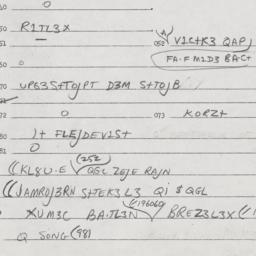 0
R1TL3X
052 V1C+K3 QAP
FA-F M1D3 BAC+
0
UPG3S+TOJPT D3M S+TOJB
0 073 KORZ+
)+ FLEJDEV1S+
0
((KL8U·E (252) QGL ZEJE RAJN
((JAMROJ3RN S+TEK3 L3 Q1 $ QGL
XUM3C BA·TL3N (196060) BREZ3L3X ((1
Q SONG (98)